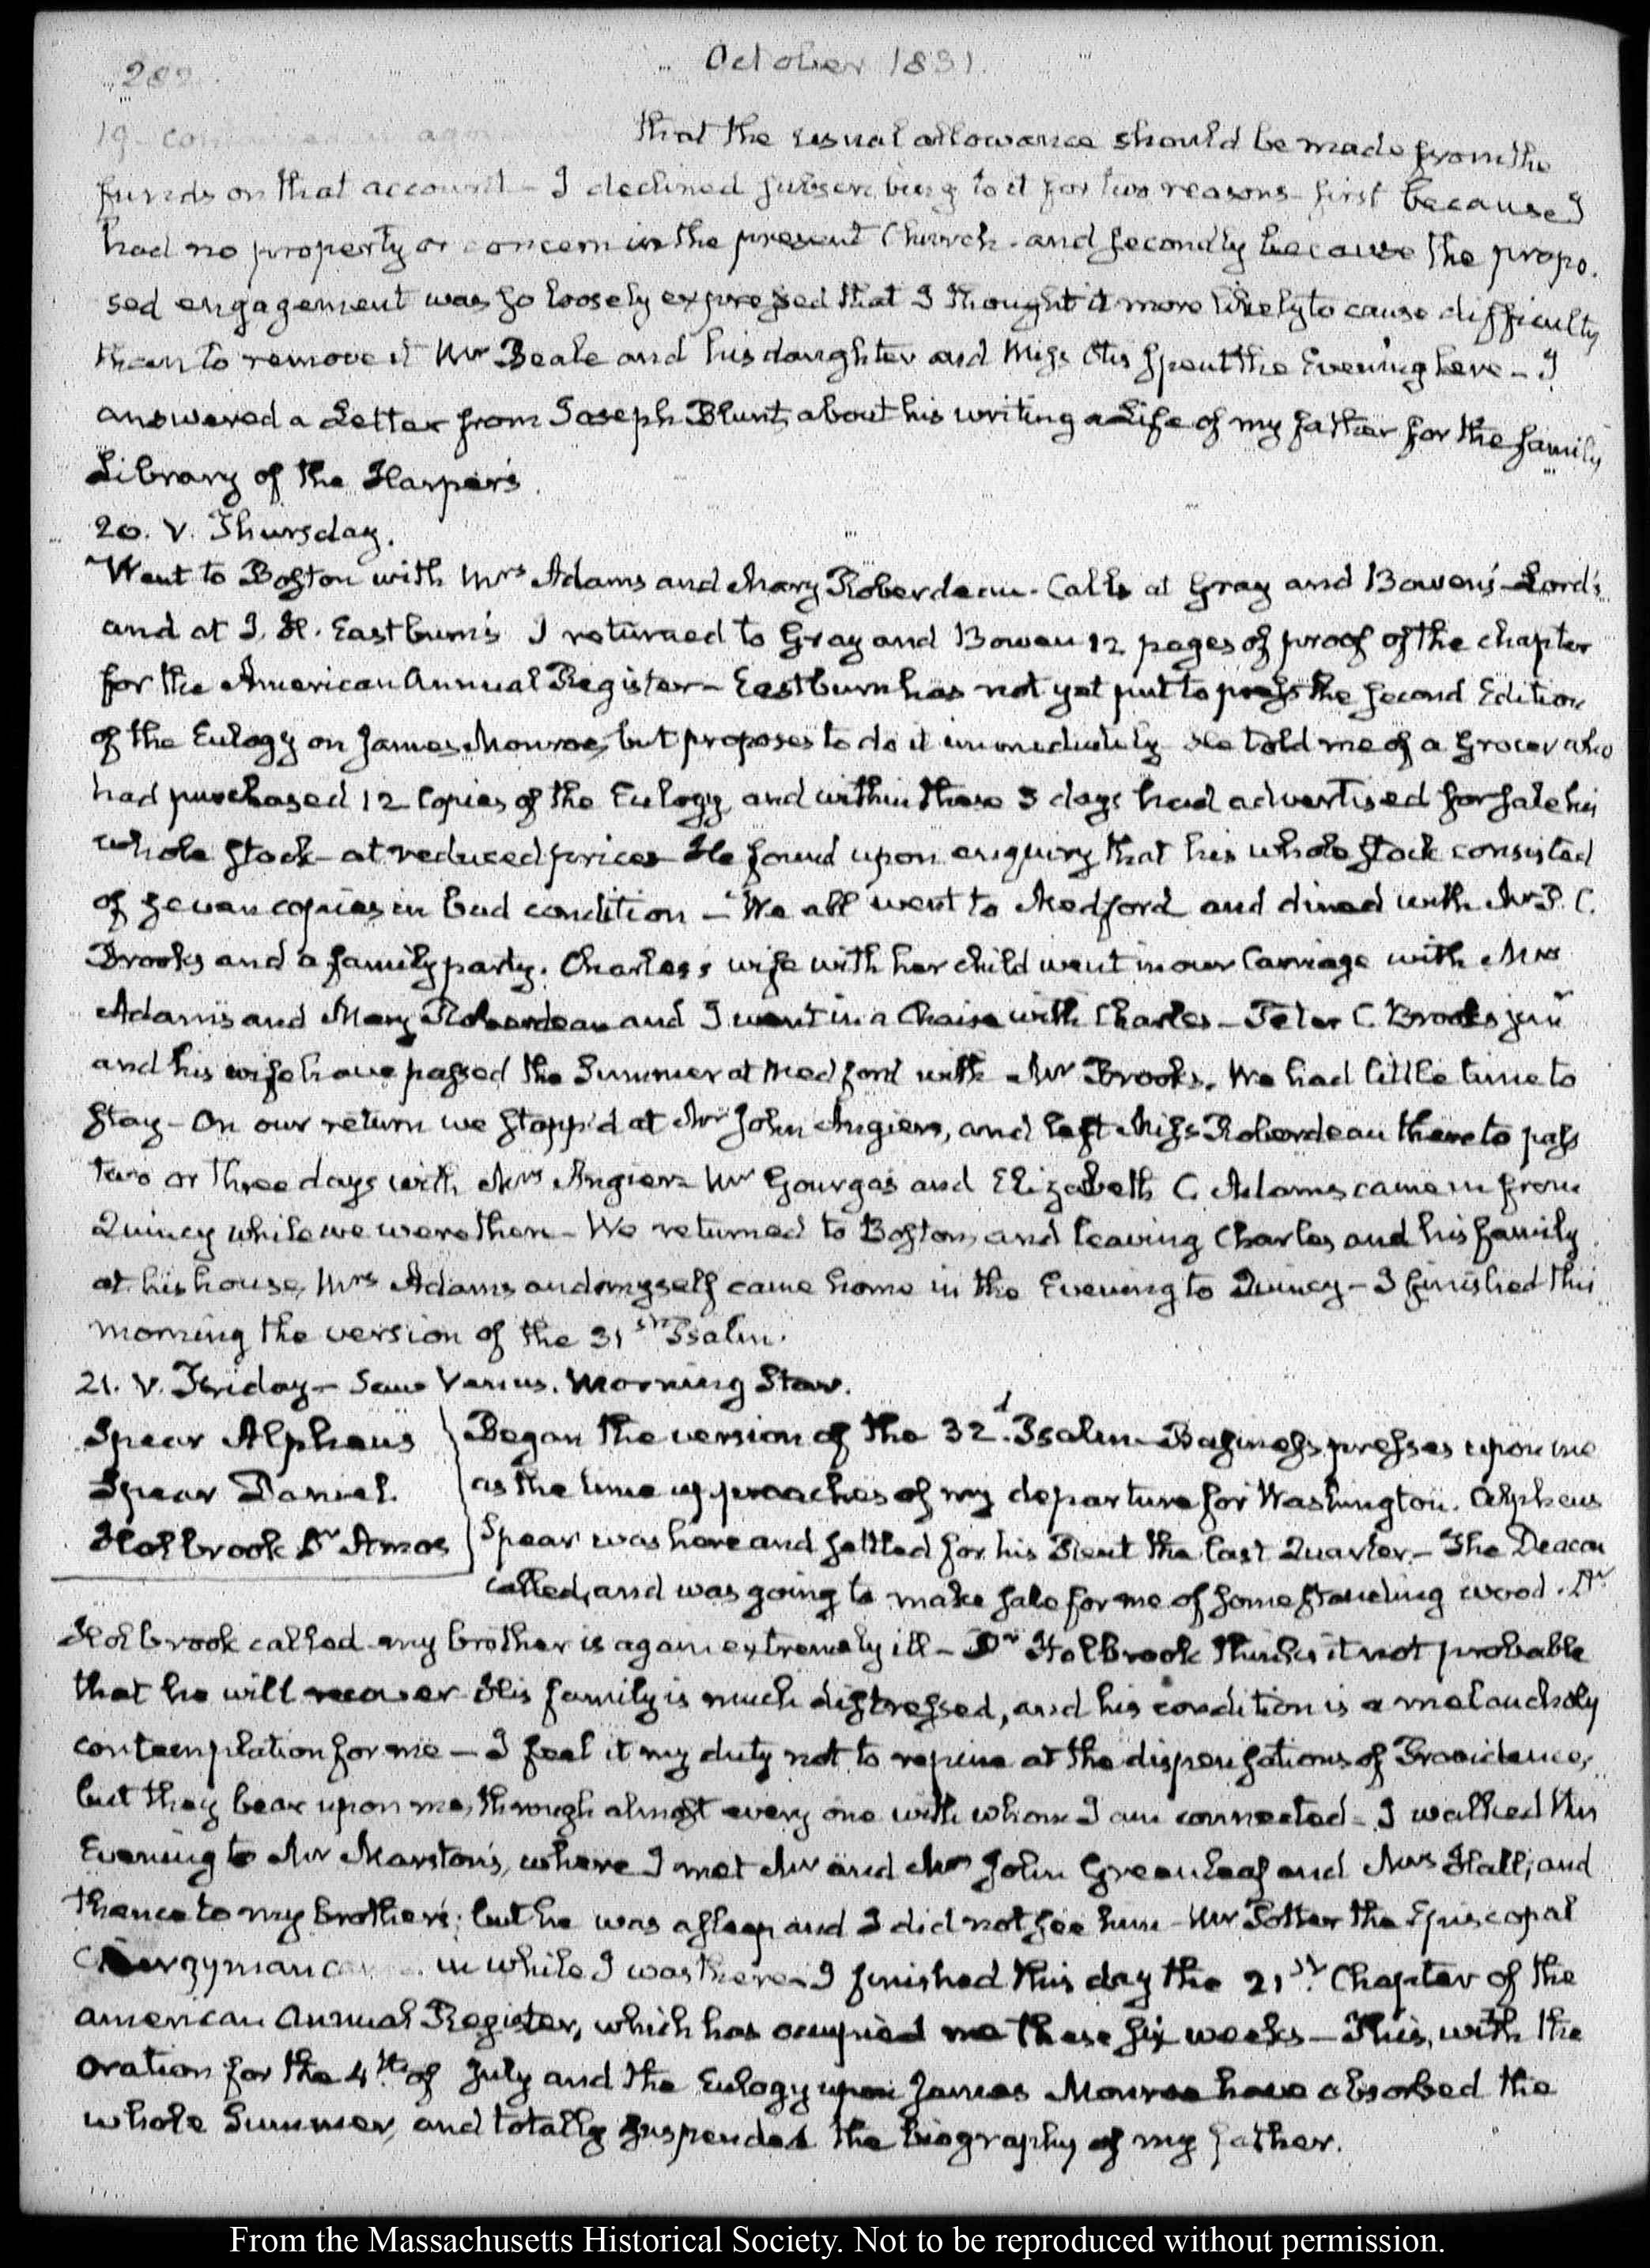 282
October 1831.
19 continued that the usual allowance should be made from the
funds on that account - I declined subscribing to it for two reasons - first because I
had no property or concern in the present Church - and secondly because the propo-
sed engagement was so loosely expressed that I thought it more likely to cause difficulty
than to remove it Mr Beale and his daughter and Miss Otis spent the Evening here - I
answered a Letter from Joseph Blunt, about his writing a Life of my father for the family
Library of the Harper's.
20. V. Thursday.
Went to Boston with Mrs Adams and Mary Roberdeau. Calls at Gray and Bowen's - Lord's
and at J. H. Eastburn's I returned to Gray and Bowen 12 pages of proof of the chapter
for the American Annual Register - Eastburn has not yet put to press the second Edition
of the Eulogy on James Monroe, but proposes to do it immediately He told me of a Grocer who
had purchased 12 Copies of the Eulogy, and within these 3 days had advertised for sale his
whole stock - at reduced prices - He found upon enquiry that his whole stock consisted
of seven copies in bad condition - We all went to Medford and dined with Mr P. C.
Brooks and a family party. Charles's wife with her child went in our Carriage with Mrs
Adams and Mary Roberdeau and I went in a Chaise with Charles - Peter C. Brooks junr
and his wife have passed the Summer at Medford with Mr Brooks. We had little time to
stay - On our return we stopp'd at Mr John Angiers, and left Miss Roberdeau there to pass
two or three days with Mrs Angier - Mr Gourgas and Elizabeth C. Adams came in from
Quincy while we were there - We returned to Boston, and leaving Charles and his family
at his house, Mrs Adams and myself came home in the Evening to Quincy - I finished this
morning the version of the 31st Psalm.
21. V. Friday - Saw Venus. Morning Star.
Spear Alpheus
Spear Daniel.
Holbrook Dr Amos
Began the version of the 32d. Psalm - Business presses upon me
as the time approaches of my departure for Washington. Alpheus
Spear was here and settled for his Rent the last Quarter. - The Deacon
called, and was going to make sale for me of some standing wood. Dr
Holbrook called - my brother is again extremely ill - Dr Holbrook thinks it not probable
that he will recover - His family is much distressed, and his condition is a melancholy
contemplation for me - I feel it my duty not to repine at the dispensations of Providence,
but they bear upon me, through almost every one with whom I am connected - I walked this
Evening to Mr Marston's, where I met Mr and Mrs John Greenleaf and Mrs Hall; and
thence to my brother's; but he was asleep and I did not see him - Mr Potter the Episcopal
Clergyman in while I was there - I finished this day the 21st. Chapter of the
American Annual Register, which has occupied me these six weeks - This, with the
Oration for the 4th. of July and the Eulogy upon James Monroe have absorbed the
whole Summer, and totally suspended the biography of my father.
From the Massachusetts Historical Society. Not to be reproduced without permission.